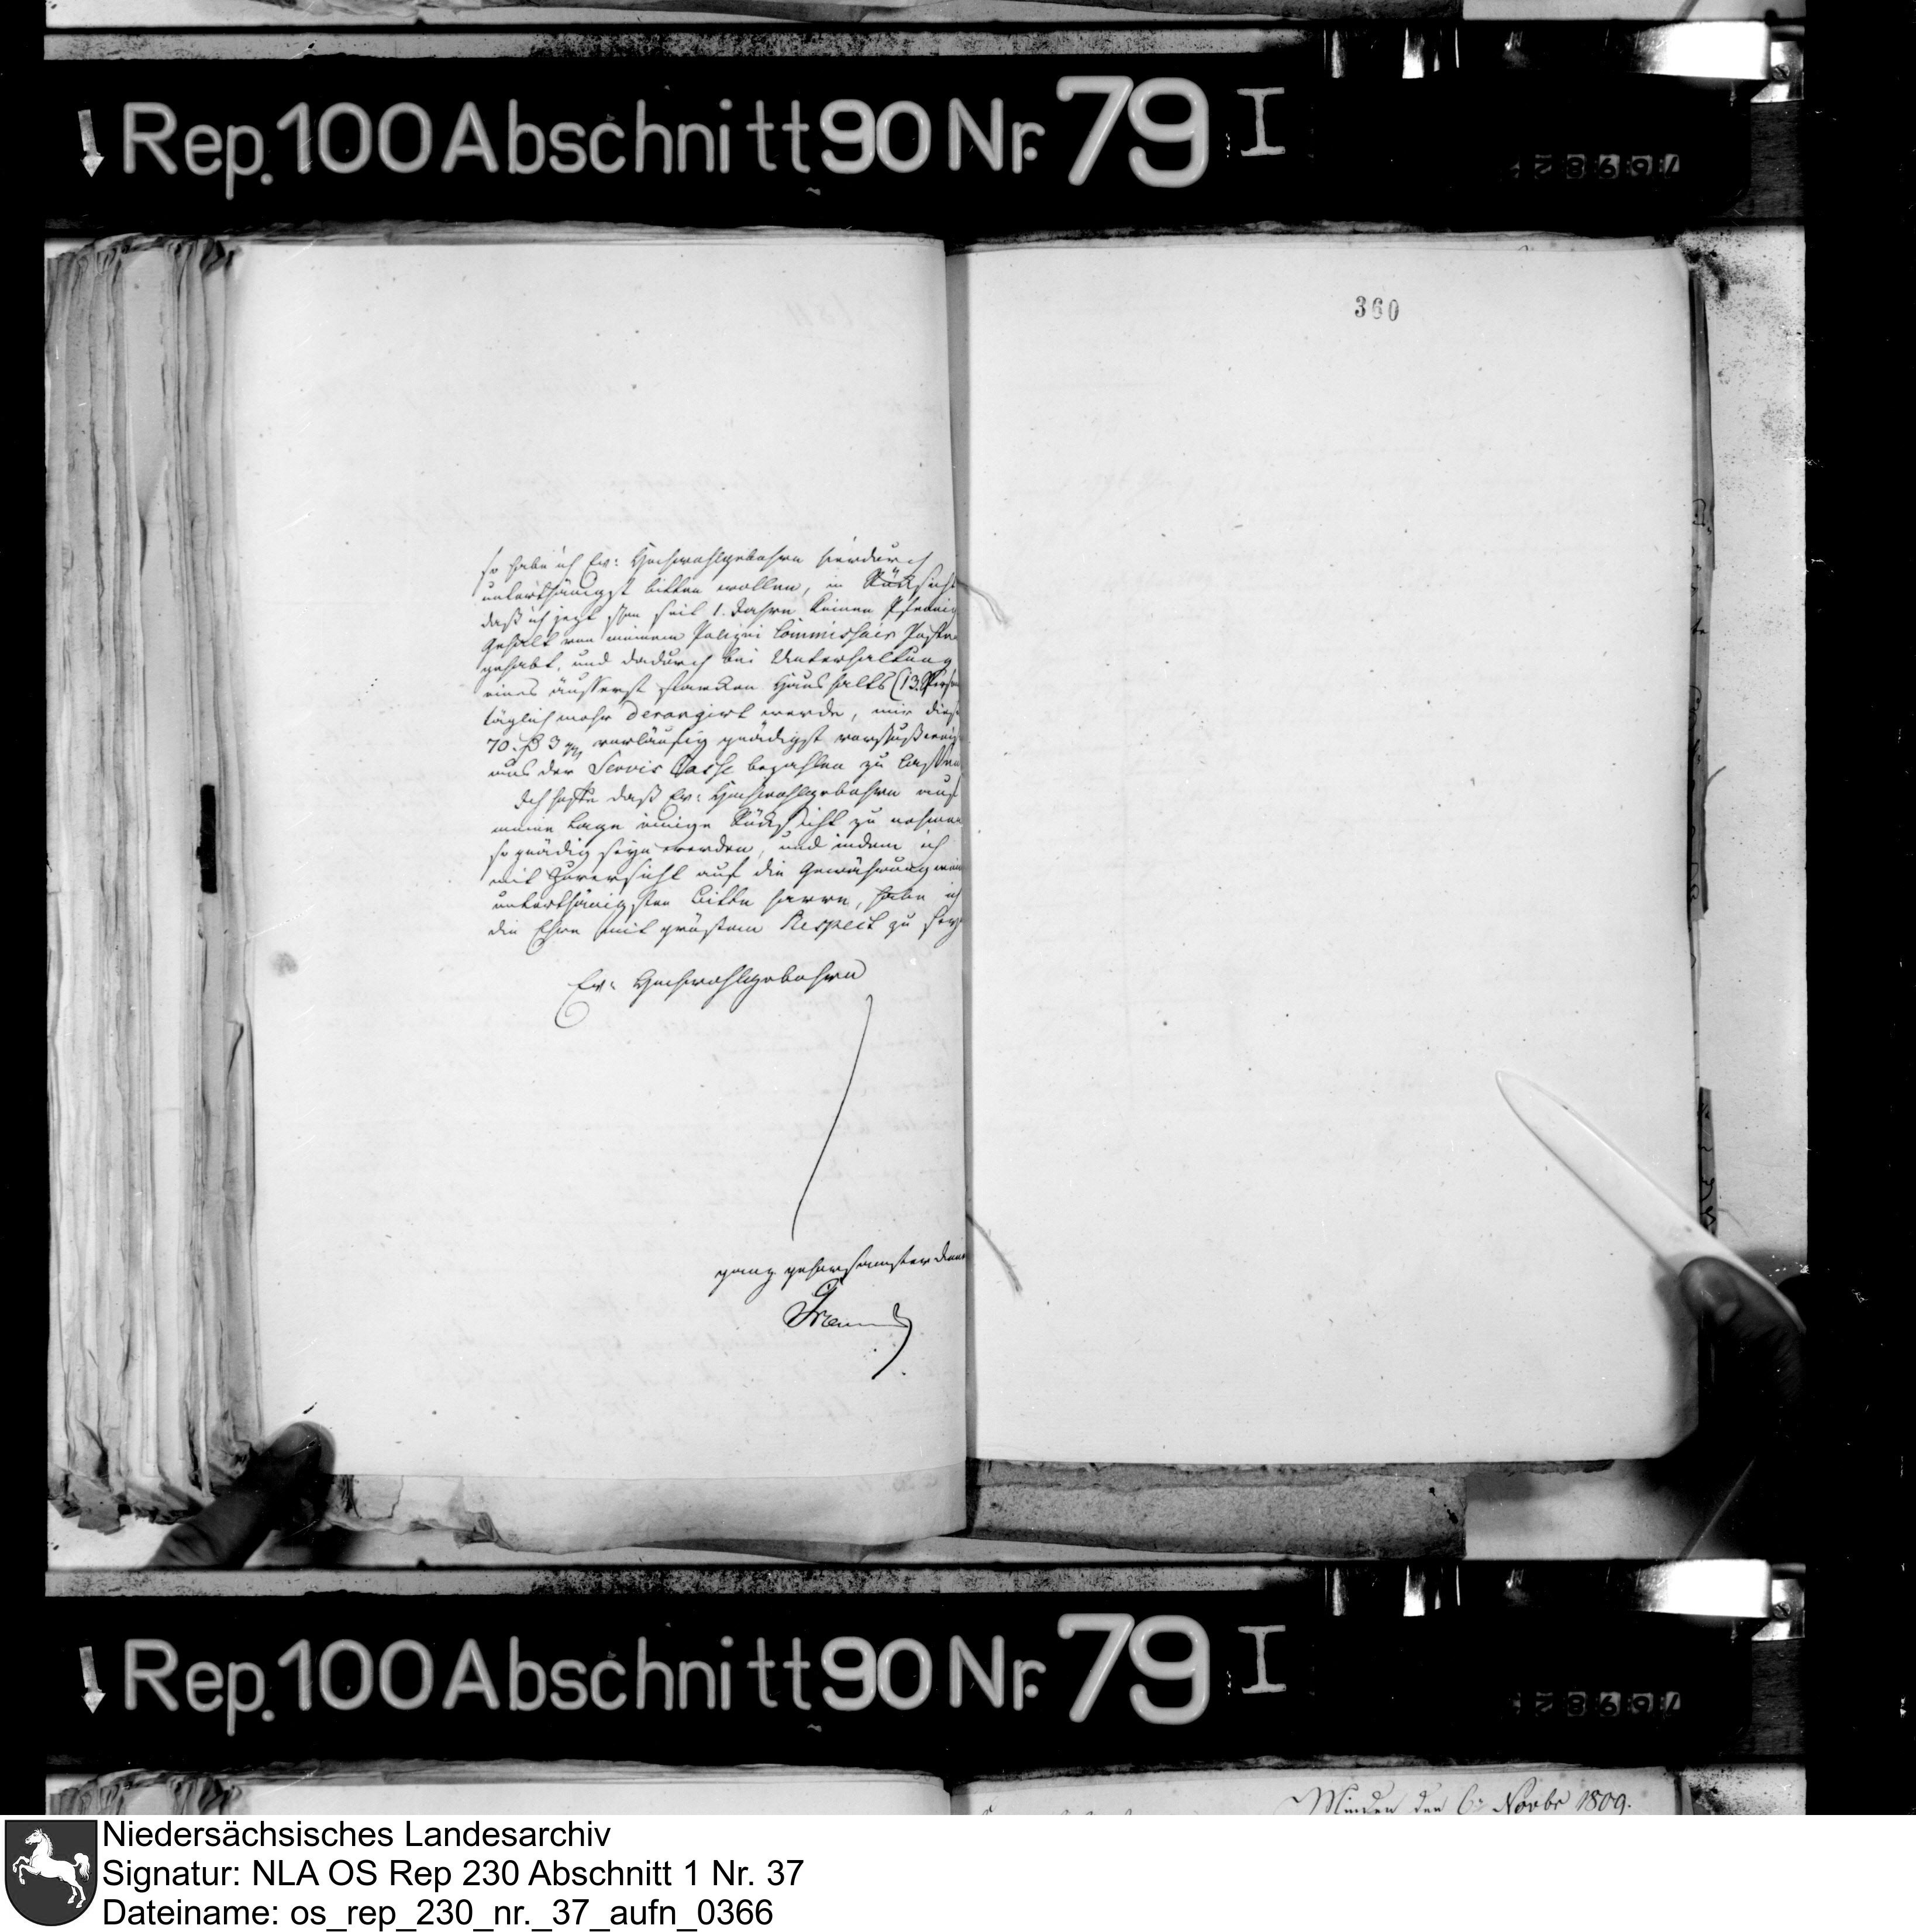 Rep. 100 Abschnitt 90 Nr. 79 I
360
so habe ich Ew: Hochwohlgebohren hierdurch
unterthänigst bitten wollen, in Rücksicht
daß ich jezt schon seit 1. Jahre keinen Pfennig
Gehalt von meinem Polizei Commissair Posten
gehabt, und dadurch bei Unterhaltung
eines äusserst starken Haushalts (13. Person
täglich mehr derangirt werde, mir diese
70 rß 3 vorläufig gnädigst vorschußweise
aus der Servis Casse bezahlen zu lassen
Ich hoffe daß Ew: Hochwohlgebohren auf
meine Lage einige Rücksicht zu nehmen
so gnädig seyn werden, und indem ich
mit Zuversicht auf die Gewährung mein
unterthänigsten Bitte harre, habe ich
die Ehre mit größtem Respect zu seyn
Ew: Hochwohlgebohren
ganz gehorsamster Diener
Rep. 100 Abschnitt 90 Nr. 79 I
Minden den 6: Novbr 1809.
Niedersächsisches Landesarchiv
Signatur: NLA OS Rep 230 Abschnitt 1 Nr. 37
Dateiname: os_rep_230_nr._37_aufn_0366